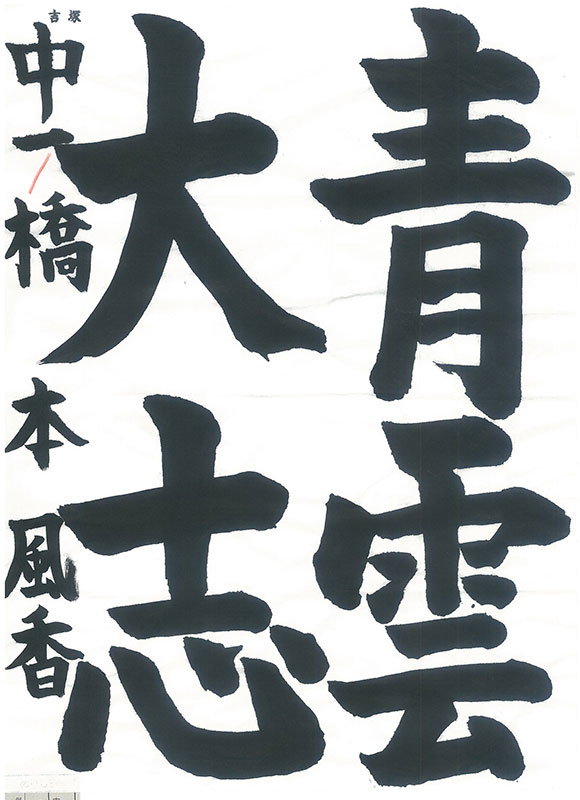 青雲
大志
吉塚
中一 橋本 風香